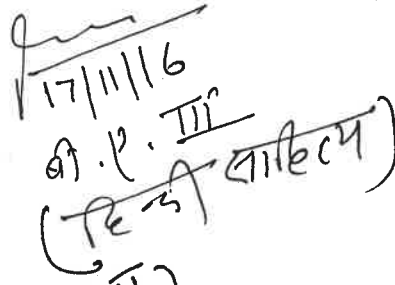 17/11/16
बी.ए. III
(हिन्दी साहित्य)